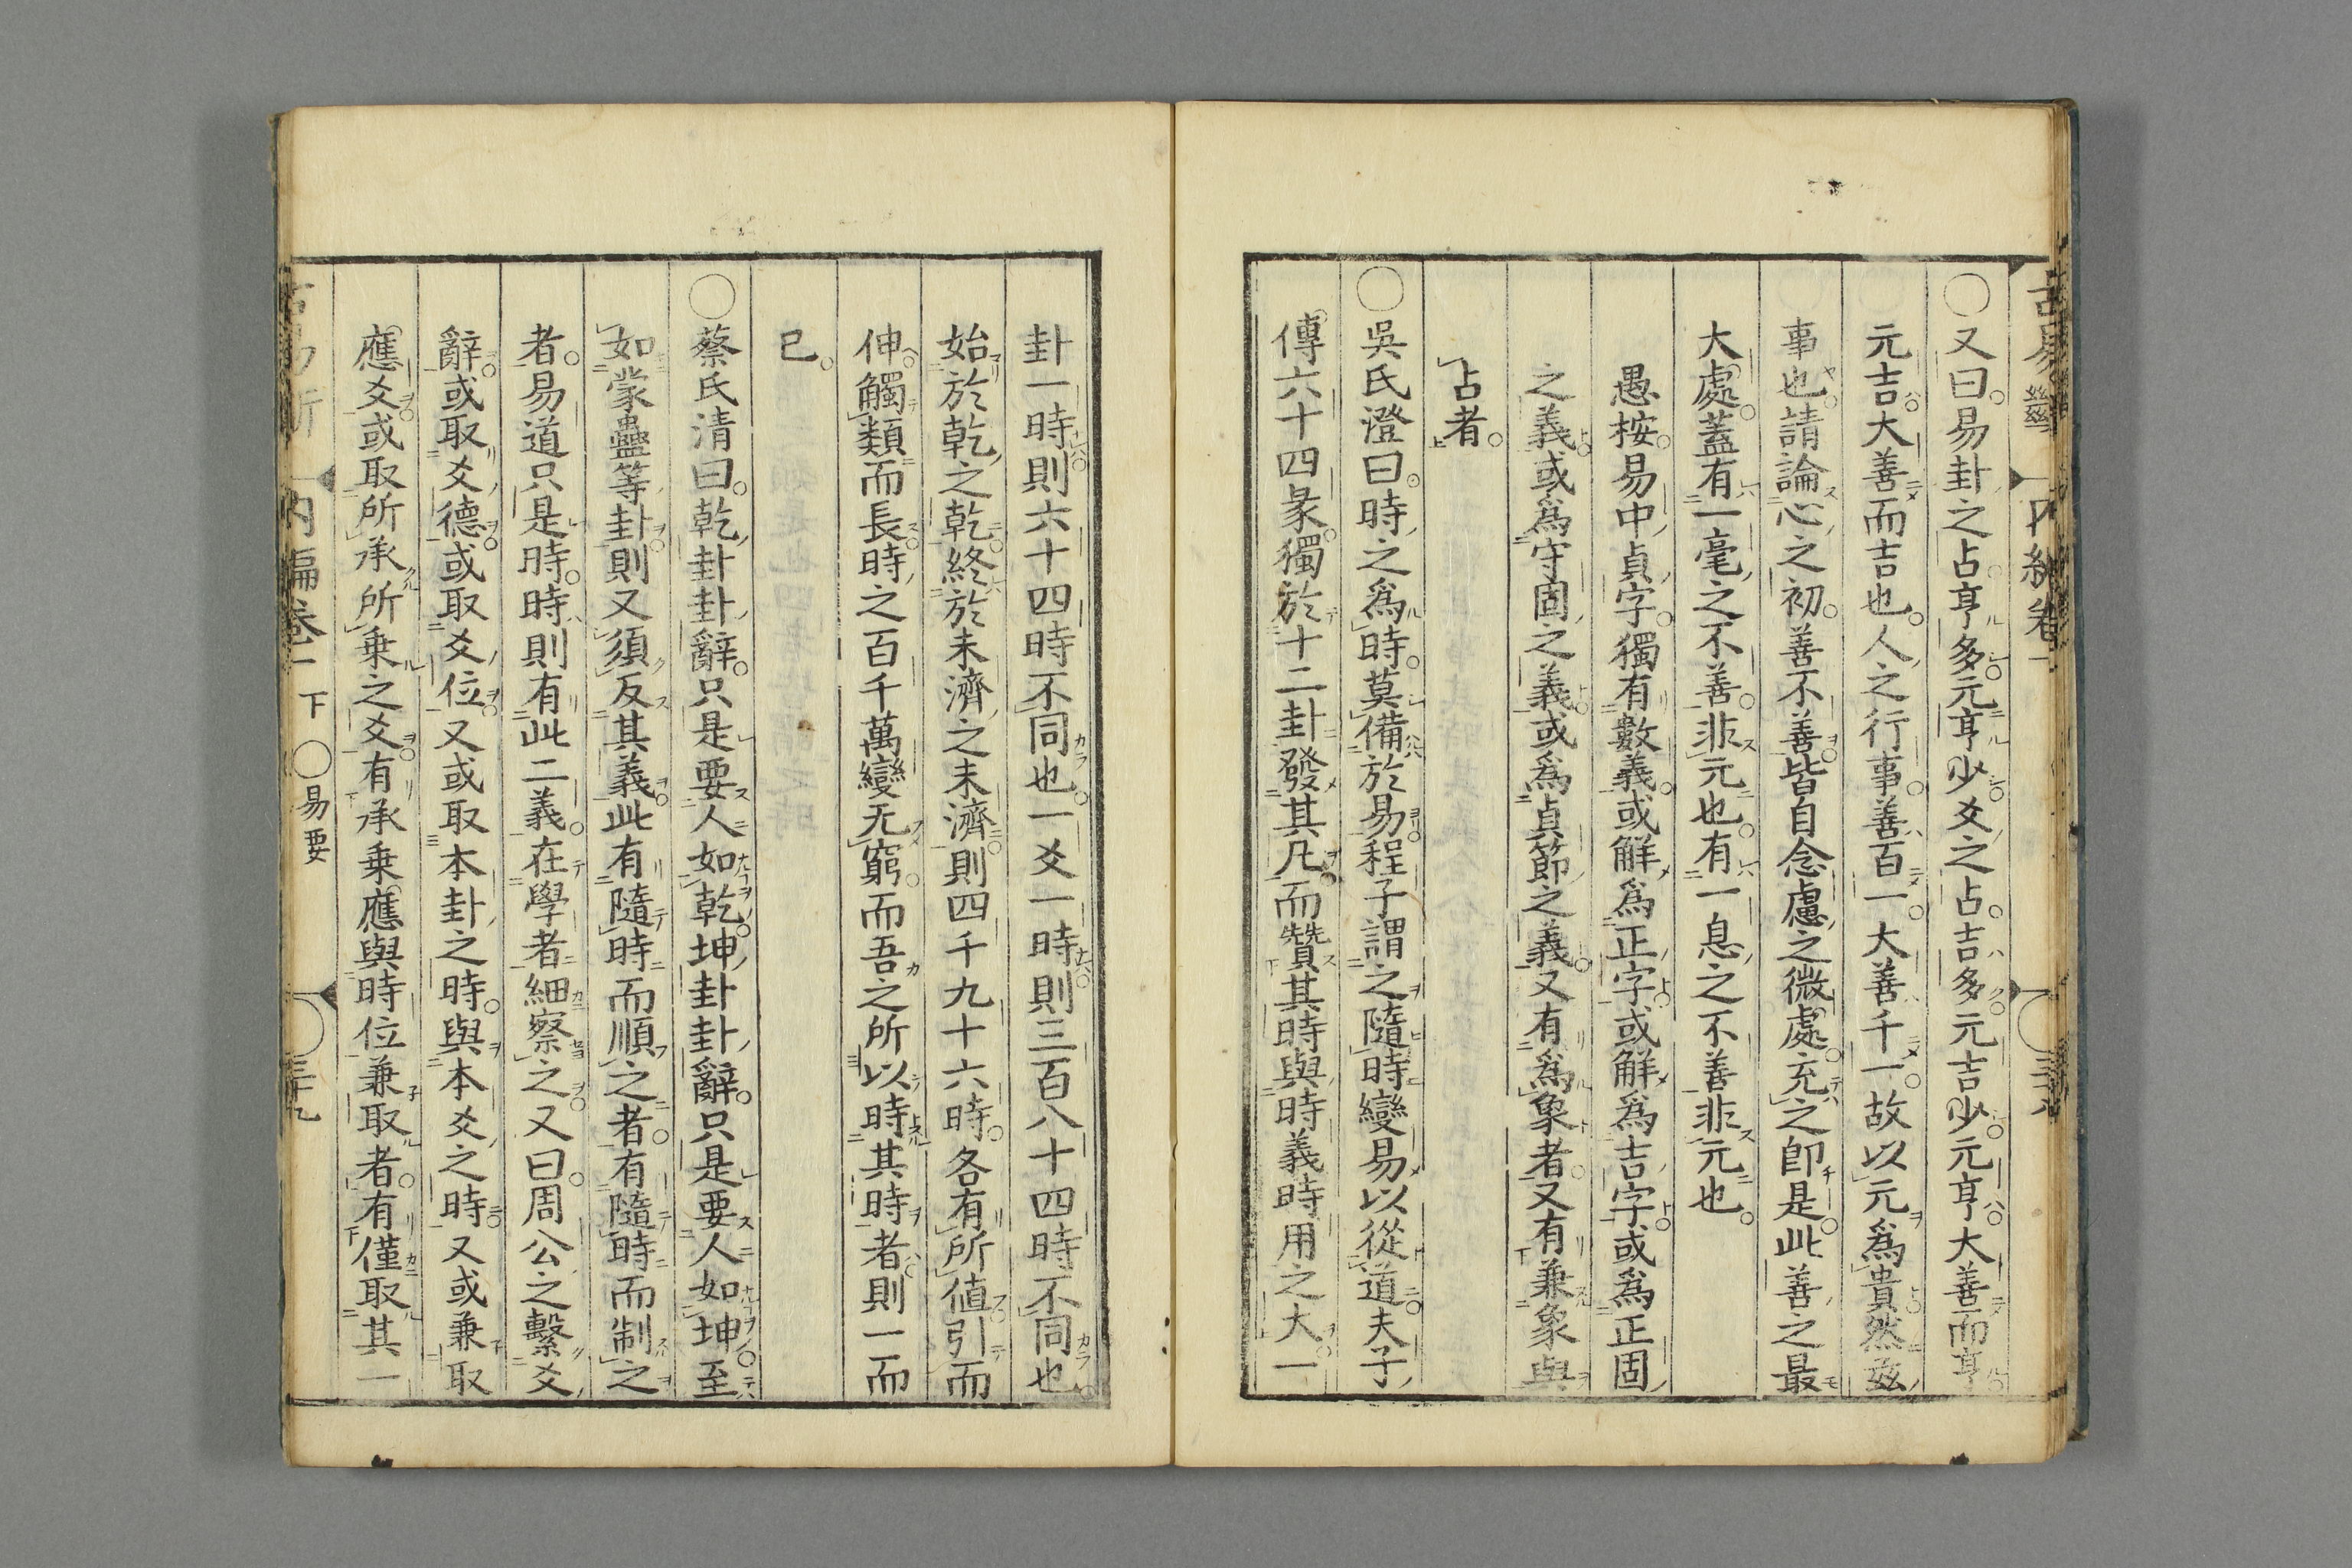 ○又曰易卦之占亨多元亨少爻之占吉多元吉少元亨大善而亨
元吉大善而吉也人之行事善百一大善千一故以元爲貴然玆
事也請論心之初善不善皆自念慮之微處充之卽是此善之最
大處蓋有一毫之不善非元也有一息之不善非元也
愚桉易中貞字獨有數義或解爲正字或解爲吉字或爲正固
之義或爲守固之義或爲貞節之義又有爲象者又有兼象與
占者
○吳氏澄曰時之爲時莫備於易程子謂之隨時變易以從道夫子
傳六十四彖獨於十二卦發其凡而贊其時與時義時用之大一
卦一時則六十四時不同也一爻一時則三百八十四時不同也
始於乾之乾終於未濟之未濟則四千九十六時各有所値引而
伸觸類而長時之百千萬變无窮而吾之所以時其時者則一而
已
○蔡氏清曰乾卦卦辭只是要人如乾坤卦卦辭只是要人如坤至
如蒙蠱等卦則又須反其義此有隨時而順之者有隨時而制之
者易道只是時時則有此二義在學者細察之又曰周公之繫爻
辭或取爻德或取爻位又或取本卦之時與本爻之時又或兼取
應爻或取所承所乘之爻有承乘應與時位兼取者有僅取其一
内編卷一 下 ○易要 三十九